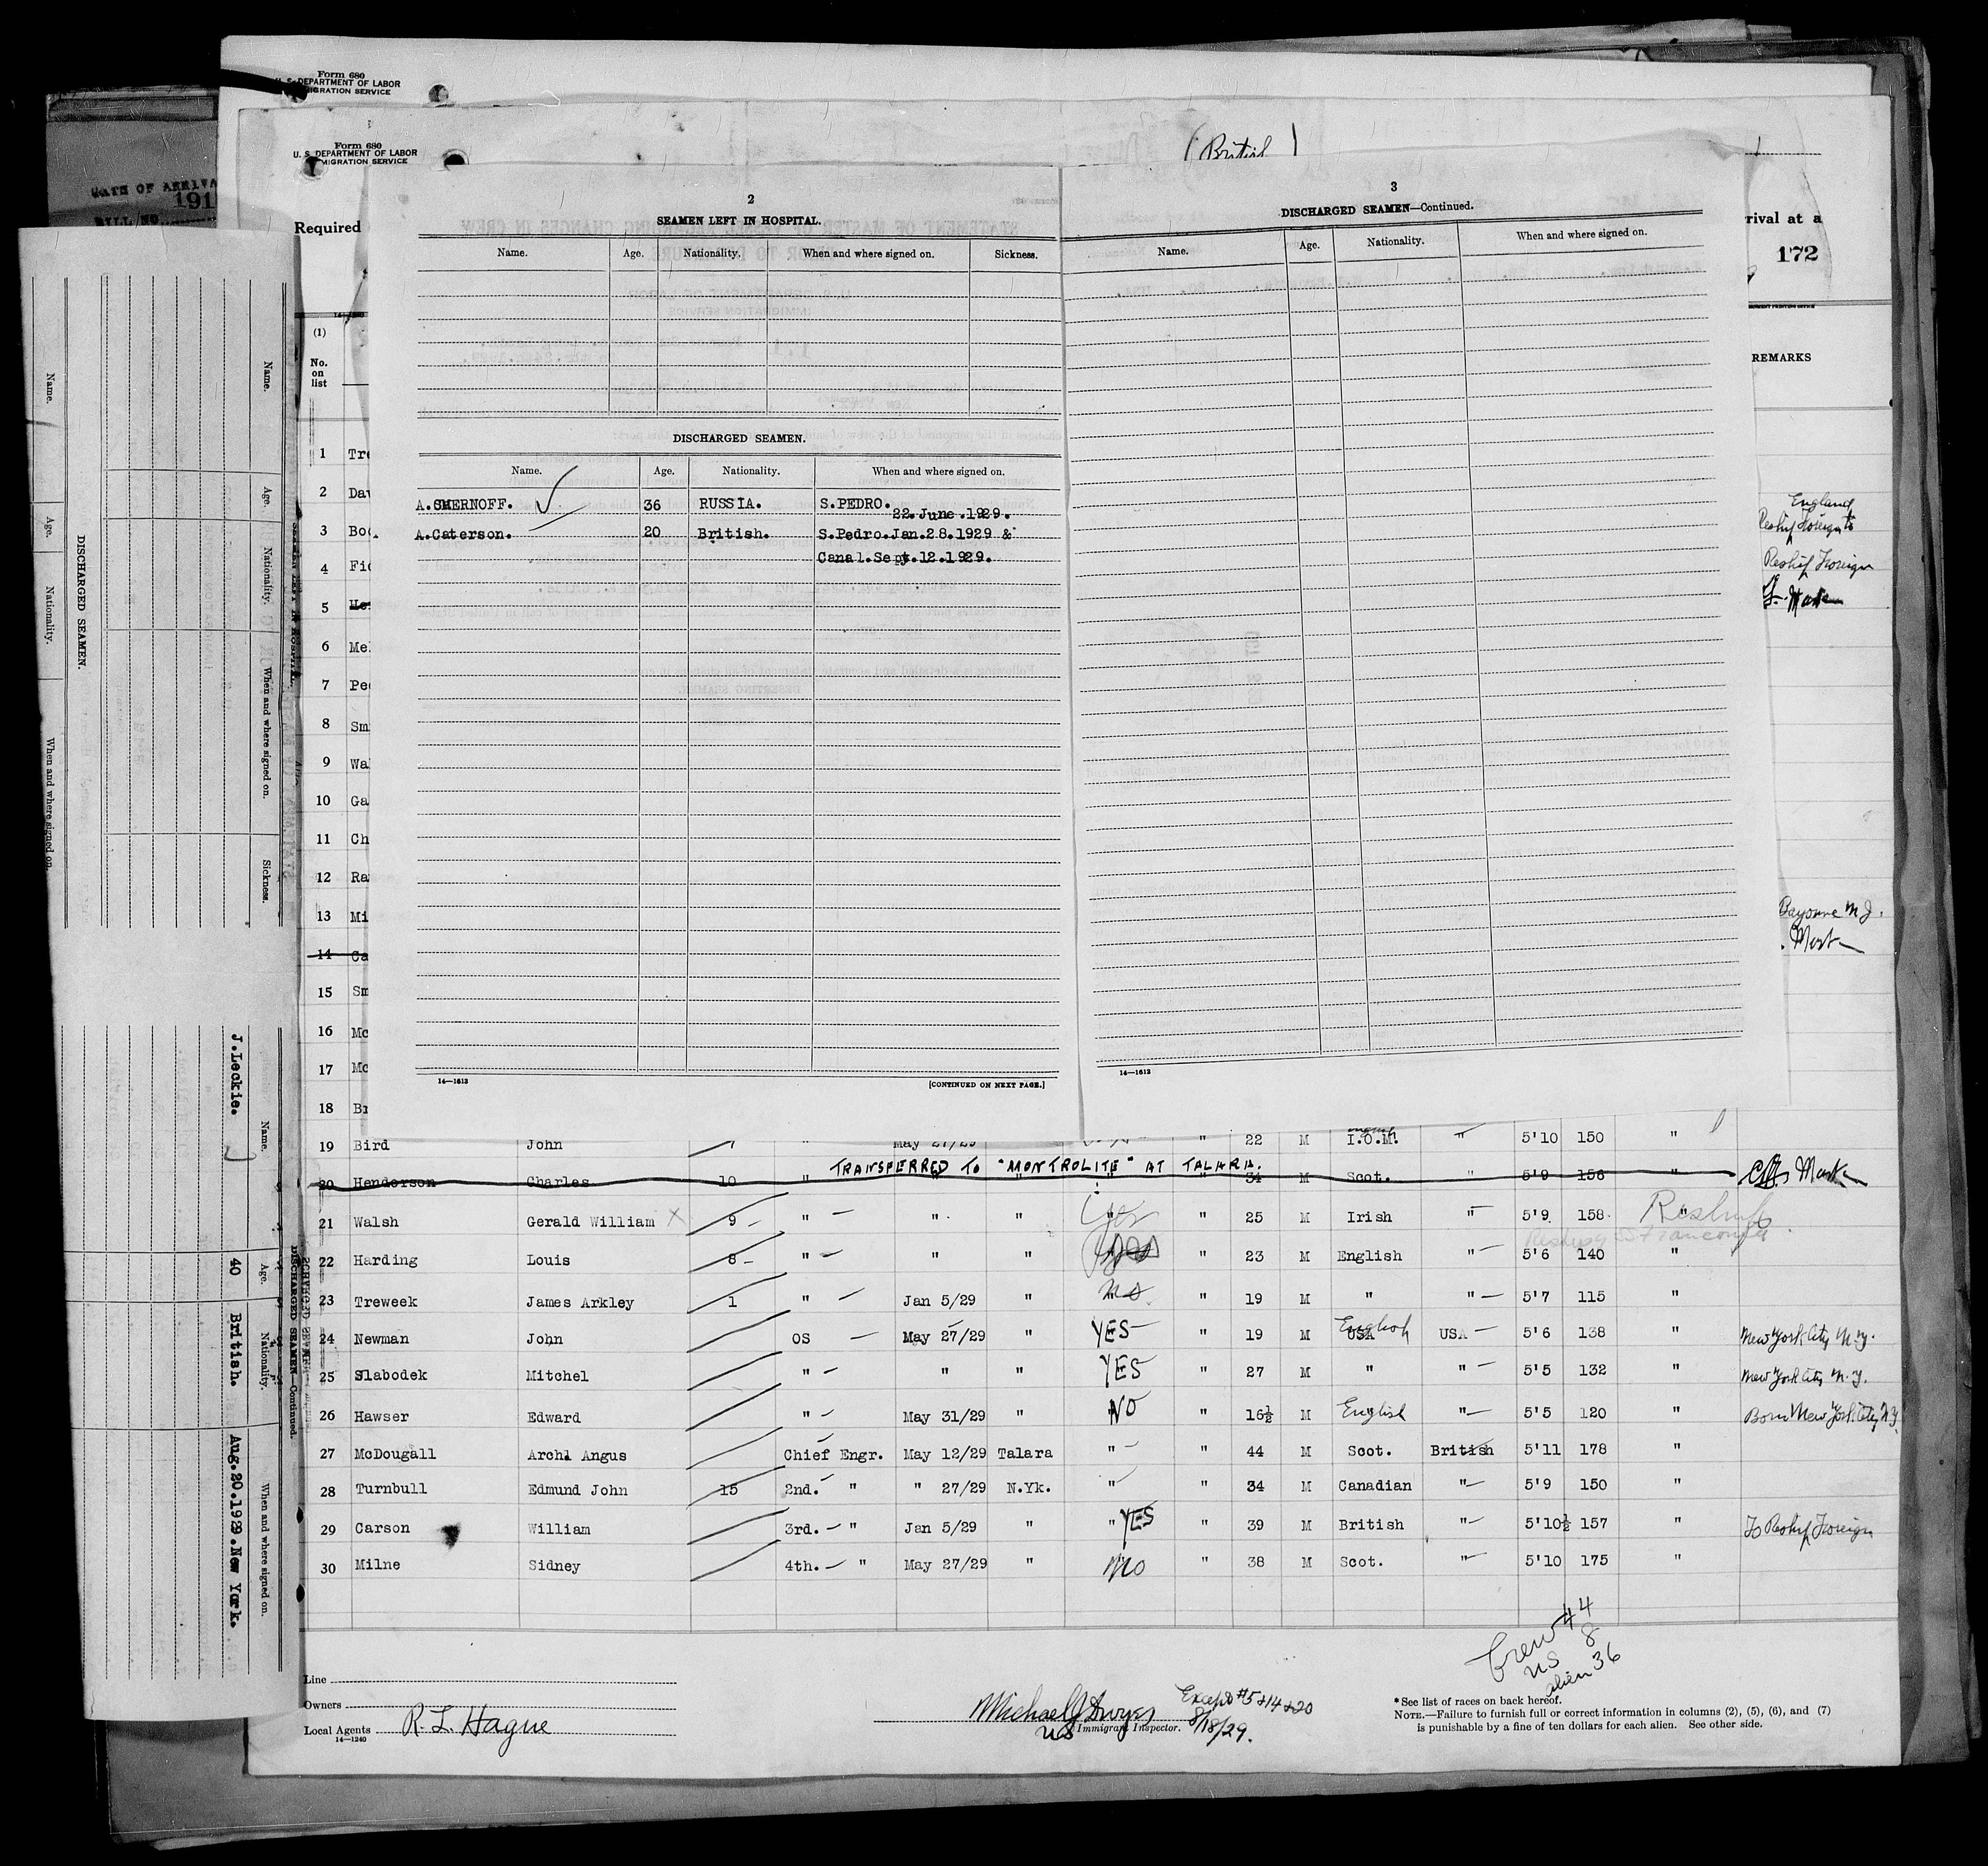 Form 680
U. S. DEPARTMENT OF LABOR
IMMIGRATION SERVICE
Form 680
U. S. DEPARTMENT OF LABOR
IMMIGRATION SERVICE
( British )
DATE OF ARRIVA
191
Required
rival at a
172
2
SEAMEN LEFT IN HOSPITAL.
Name. Age. Nationality. When and where signed on. Sickness.
DISCHARGED SEAMEN.
Name. Age. Nationality. When and where signed on.
A.SMERNOFF. 36 RUSSIA. S.PEDRO.
22.June.1929.
A.Caterson. 20 British. S.Pedro.Jan.28.1929 &
Canal.Sept.12.1929.
14—1613 [CONTINUED ON NEXT PAGE.]
3
DISCHARGED SEAMEN—Continued.
Name. Age. Nationality. When and where signed on.
14—1613
(1)
No.
on
list
REMARKS
1 Tre
2 Dav
England
3 Bo
Reship foreign to
4 Fi
Reship Foreign
5 He
6 Me
7 Pe
8 Sm
9 Wa
10 Ga
11 Ch
12 Ra
13 Mi
Bayonne N J.
14 Ca
15 Sm
16 Mc
17 Mc
18 Br
19 Bird John 7 " May 27/29 " 22 M I.O.M. " 5'10 150 "
TRANSFERRED TO "MONTROLITE" AT TALARA.
20 Henderson Charles 10 " " " " 34 M Scot. " 5'9 156 "
21 Walsh Gerald William X 9 " " " Yes " 25 M Irish " 5'9 158 " Reship
22 Harding Louis 8 " " " " 23 M English " 5'6 140
23 Treweek James Arkley 1 " Jan 5/29 " No " 19 M " " 5'7 115 "
24 Newman John OS May 27/29 " YES " 19 M USA English USA 5'6 138 " New York City N.Y.
25 Slabodek Mitchel " " " YES " 27 M " " 5'5 132 " New York City N.Y.
26 Hawser Edward " May 31/29 " NO " 16½ M English " 5'5 120 " Born New York City N.Y.
27 McDougall Archl Angus Chief Engr. May 12/29 Talara " " 44 M Scot. British 5'11 178 "
28 Turnbull Edmund John 15 2nd. " " 27/29 N.Yk. " " 34 M Canadian " 5'9 150 "
29 Carson William 3rd. " Jan 5/29 " " YES " 39 M British " 5'10½ 157 " To Reship Foreign
30 Milne Sidney 4th. " May 27/29 " No " 38 M Scot. " 5'10 175 "
Crew 44
US 8
alien 36
Line
Owners
Local Agents R. L. Hague
14—1240
Michael J Dwyer Except #5 & 14 & 20
US Immigrant Inspector. 8/18/29.
*See list of races on back hereof.
NOTE.—Failure to furnish full or correct information in columns (2), (5), (6), and (7)
is punishable by a fine of ten dollars for each alien. See other side.
Name. Age. Nationality. When and where signed on. Sickness.
DISCHARGED SEAMEN.
Name. Age. Nationality. When and where signed on.
SEAMEN LEFT IN HOSPITAL.
DISCHARGED SEAMEN—Continued.
Name. Age. Nationality. When and where signed on.
J.Leckie. 40 British. Aug.20.1929.New York.